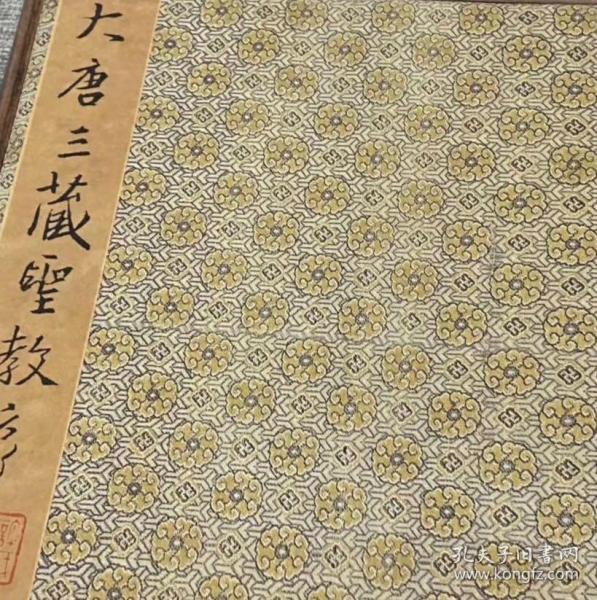 大唐三藏聖教序
孔夫子旧书网
www.kongfz.com